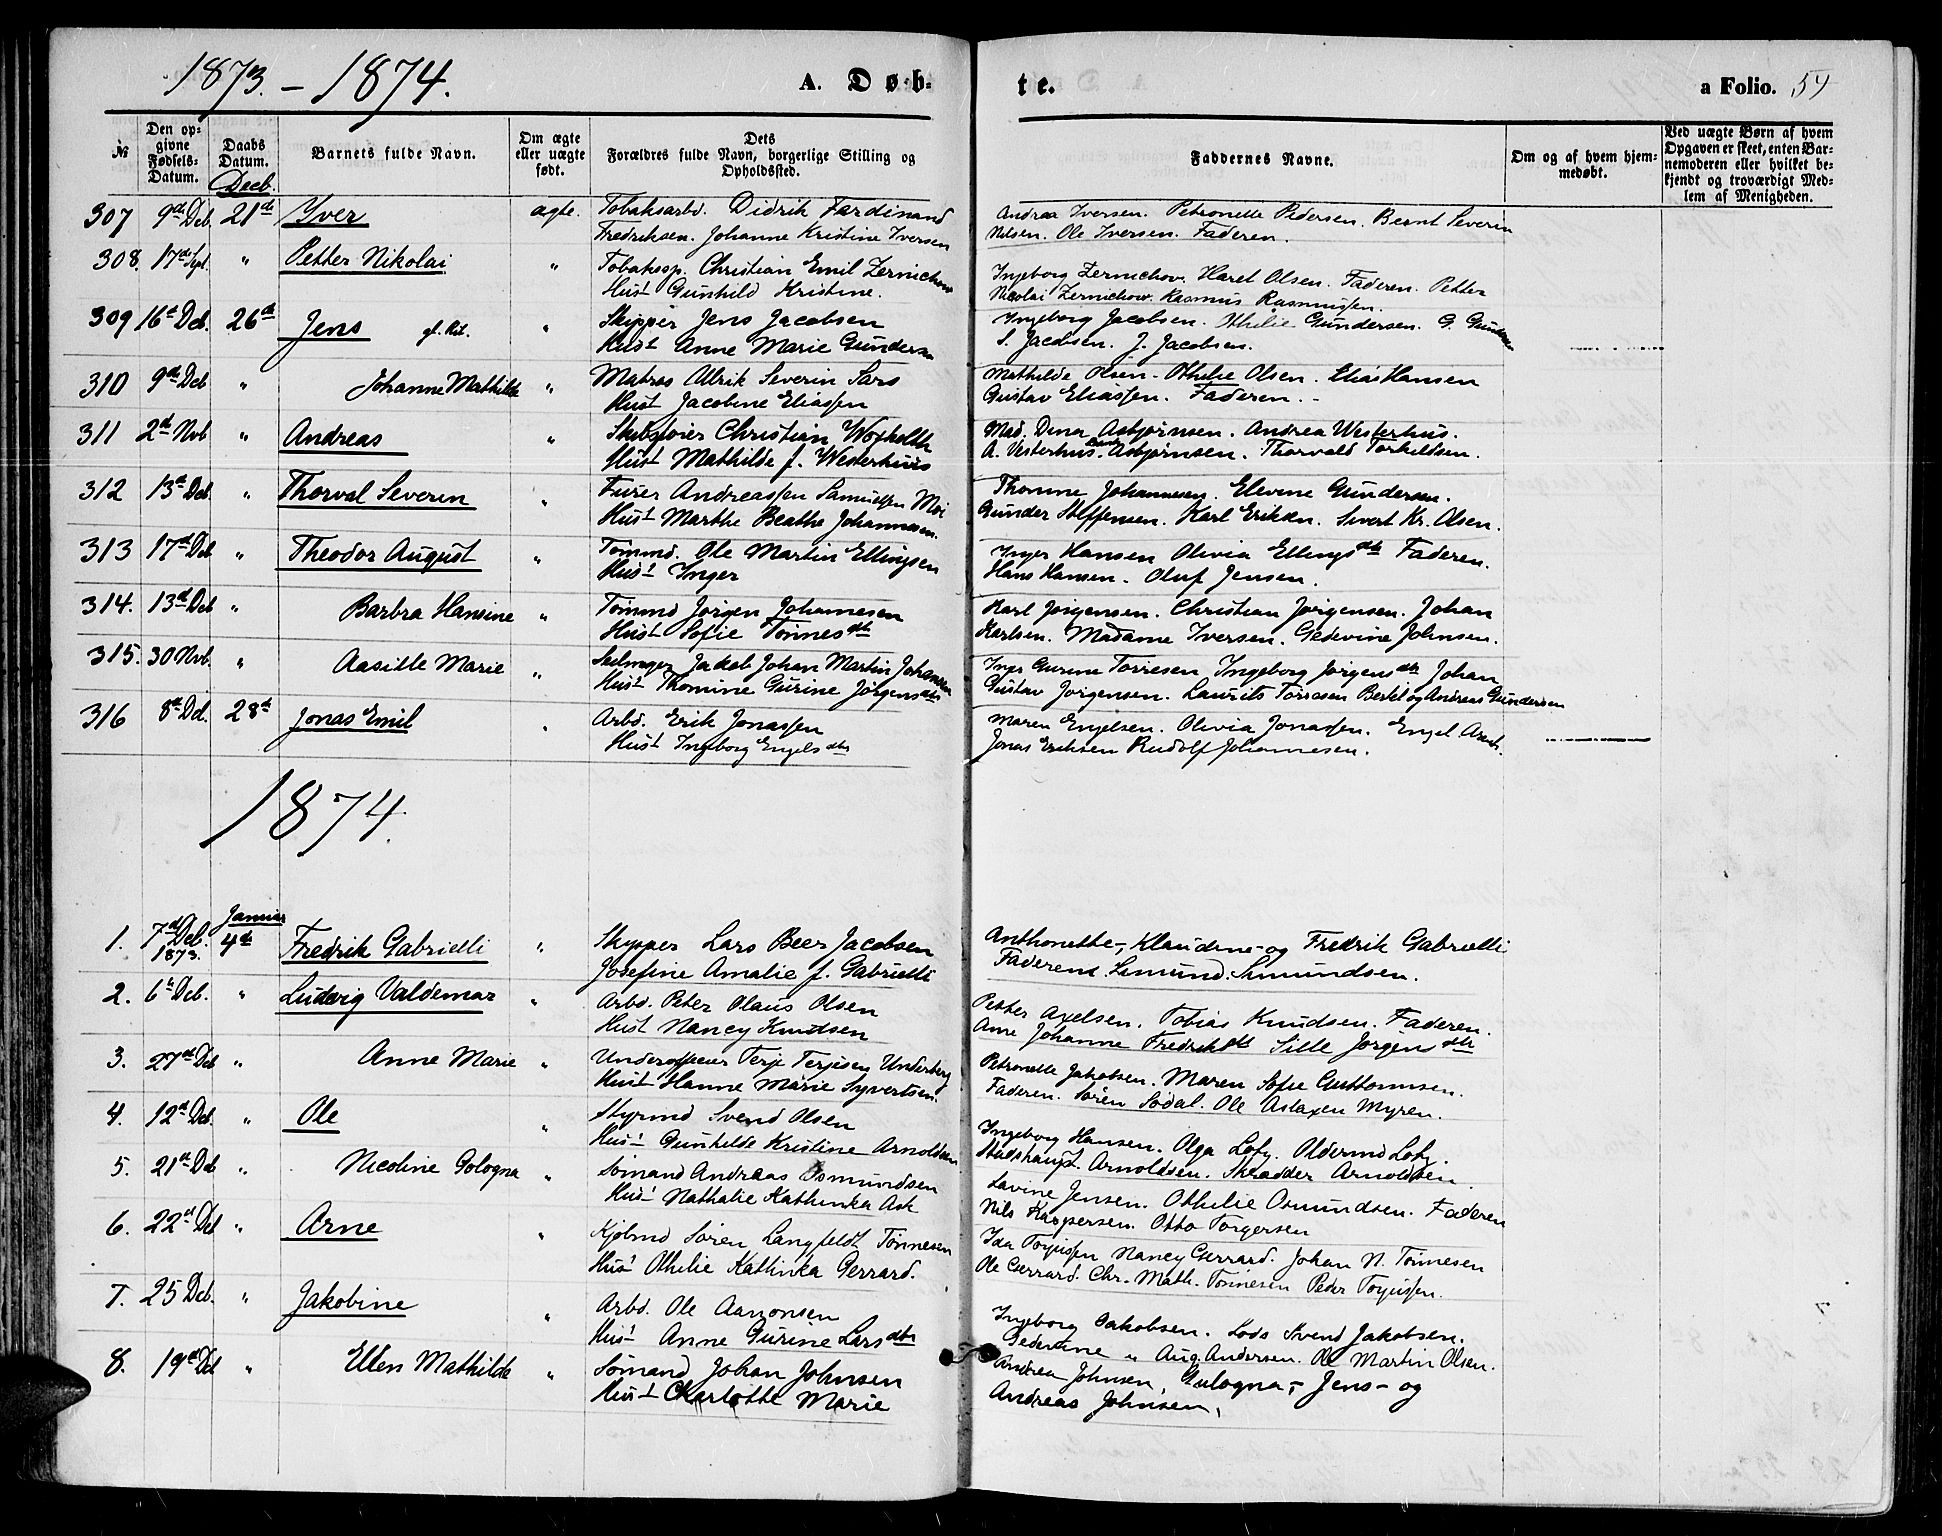 1873. - 1874.
A. Døb-
te.
a Folio. 54
№
Den op-
givne
Fødsels-
Datum.
Daabs
Datum.
Barnets fulde Navn.
Om ægte
eller uægte
født.
Dets
Forældres fulde Navn, borgerlige Stilling og
Opholdssted.
Faddernes Navne.
Om og af hvem hjem-
medøbt.
Ved uægte Børn af hvem
Opgaven er skeet, enten Bar-
nemoderen eller hvilket be-
kjendt og troværdigt Med-
lem af Menigheden.
Decb.
307 9de Deb 21de Yver ægte. Tobaksarbd. Didrik Ferdinand
Fredriksen. Johanne Kristine Iversen
Andrea Iversen. Petronelle Pedersen. Bernt Severin
Nilsen. Ole Iversen. Faderen.
308. 17de Spt. " Petter Nikolai " Tobaksp. Christian Emil Zernichow
Hust Gunhild Kristine.
Ingeborg Zernichow. Haret Olsen. Faderen. Petter
Nicolai Zernichow. Rasmus Rasmussen.
309 16de Deb. 26de Jens " Skipper Jens Jacobsen
Hust Anne Marie Gundersen
Ingeborg Jacobsen. Othelie Gundersen. G. Gundersen
S. Jacobsen. J. Jacobsen.
310 9de Deb " Johanne Mathilde " Matros Ulrik Severin Sars
Hust Jacobine Eliassen
Mathilde Olsen - Othelie Olsen. Elias Hansen
Gustav Eliassen. Faderen. -
311 2de Nvb " Andreas " Christian Woxholth
Hust Mathilde f. Westerhuus
Mad. Dina Asbjørnsen. Andrea Westerhus.
A. Vesterhus. Asbjørnsen. Thorvald Torkildsen.
312 13de Deb. " Thorval Severin " Furer Andreassen Samuelsen Moi
Hust Marthe Beathe Johannesen.
Thomine Johannesen. Elevine Gundersen.
Gunder Steffensen. Karl Eriksen. Sivert Kr. Olsen.
313 17de Deb " Theodor August " Tømmd. Ole Martin Ellingsen
Hust Inger
Inger Hansen Olivia Ellingsdtr Faderen.
Hans Hansen. Oluf Jensen.
314. 13de Deb " Barbra Hansine " Tømmd Jørgen Johannesen
Hust Sofie Tønnesdtr
Karl Jørgensen. Christian Jørgensen. Johan
Karlsen. Madame Iversen. Gedevine Johnsen.
315. 30 Nvb. " Aasille Marie " Seilmager Jakob Johan Martin Johansen
Hust Thomine Gurine Jørgensdtr
Inger Gurine Torresen Ingeborg Jørgensdtr Johan
Gustav Jørgensen. Laurits Torresen Bertel og Andreas Gundersen
316 8de Deb. 28de Jonas Emil " Arbd. Erik Jonassen
Hust Ingeborg Engelsdtr
Maren Engelsen. Olivia Jonassen. Engel
Jonas Eriksen Rudolf Johannesen.
1874.
Januar
1. 7de Deb. 1873. 4de Fredrik Gabrielli " Skipper Lars Beer Jacobsen
Josefine Amalie f. Gabrielli
Anthonette-, Klaudine- og Fredrik Gabrielli
Faderen Simund. Simundsen.
2. 6te Deb. " Ludvig Valdemar " Arbd. Peter Olaus Olsen
Hust Nancy Knudsen
Petter Axelsen. Tobias Knudsen. Faderen.
Ane Johanne Fredriksdtr Sille Jørgensdtr
3. 27de Deb " Anne Marie " Underofficer Terje Terjesen Underberg
Hust Hanne Marie Syvertsen.
Petronelle Jakobsen. Maren Sofie Guttormsen.
Faderen. Søren Sødal. Ole Aslaxen Myren.
4. 12de Deb. " Ole " Styrmd Svend Olsen
Hust Gunhilde Kristine Arnoldsen
Ingeborg Hansen. Olga Lofz. Oldermd Lofz.
Stadshaupt. Arnoldsen. Skrædder Arnoldsen.
5. 21de Deb " Nicoline Gologna " Sømand Andreas Osmundsen
Hust Nathalie Kathinka Ask
Lavine Jensen. Othelie Osmundsen. Faderen
Nils Kaspersen. Otto Torgersen
6. 22de Deb " Arne " Kjølmd Søren Langfeldt Tønnesen
Hust Othelie Kathinka Gerrard.
Ida Torjussen Nancy Gerrard. Johan N. Tønnesen
Ole Gerrard. Chr. Math. Tønnesen Peder Torjussen.
7. 25 Deb. " Jakobine " Arbd. Ole Aanonsen
Hust Anne Gurine Larsdtr
Ingeborg Jakobsen. Lods Svend Jakobsen.
Gedevine " Aug. Andersen. Ole Martin Olsen.
8. 19de Deb " Ellen Mathilde " Sømand Johan Johnsen
Hust Charlotte Marie
Andrea Johnsen, Gulogna,- Jens- og
Andreas Johnsen,